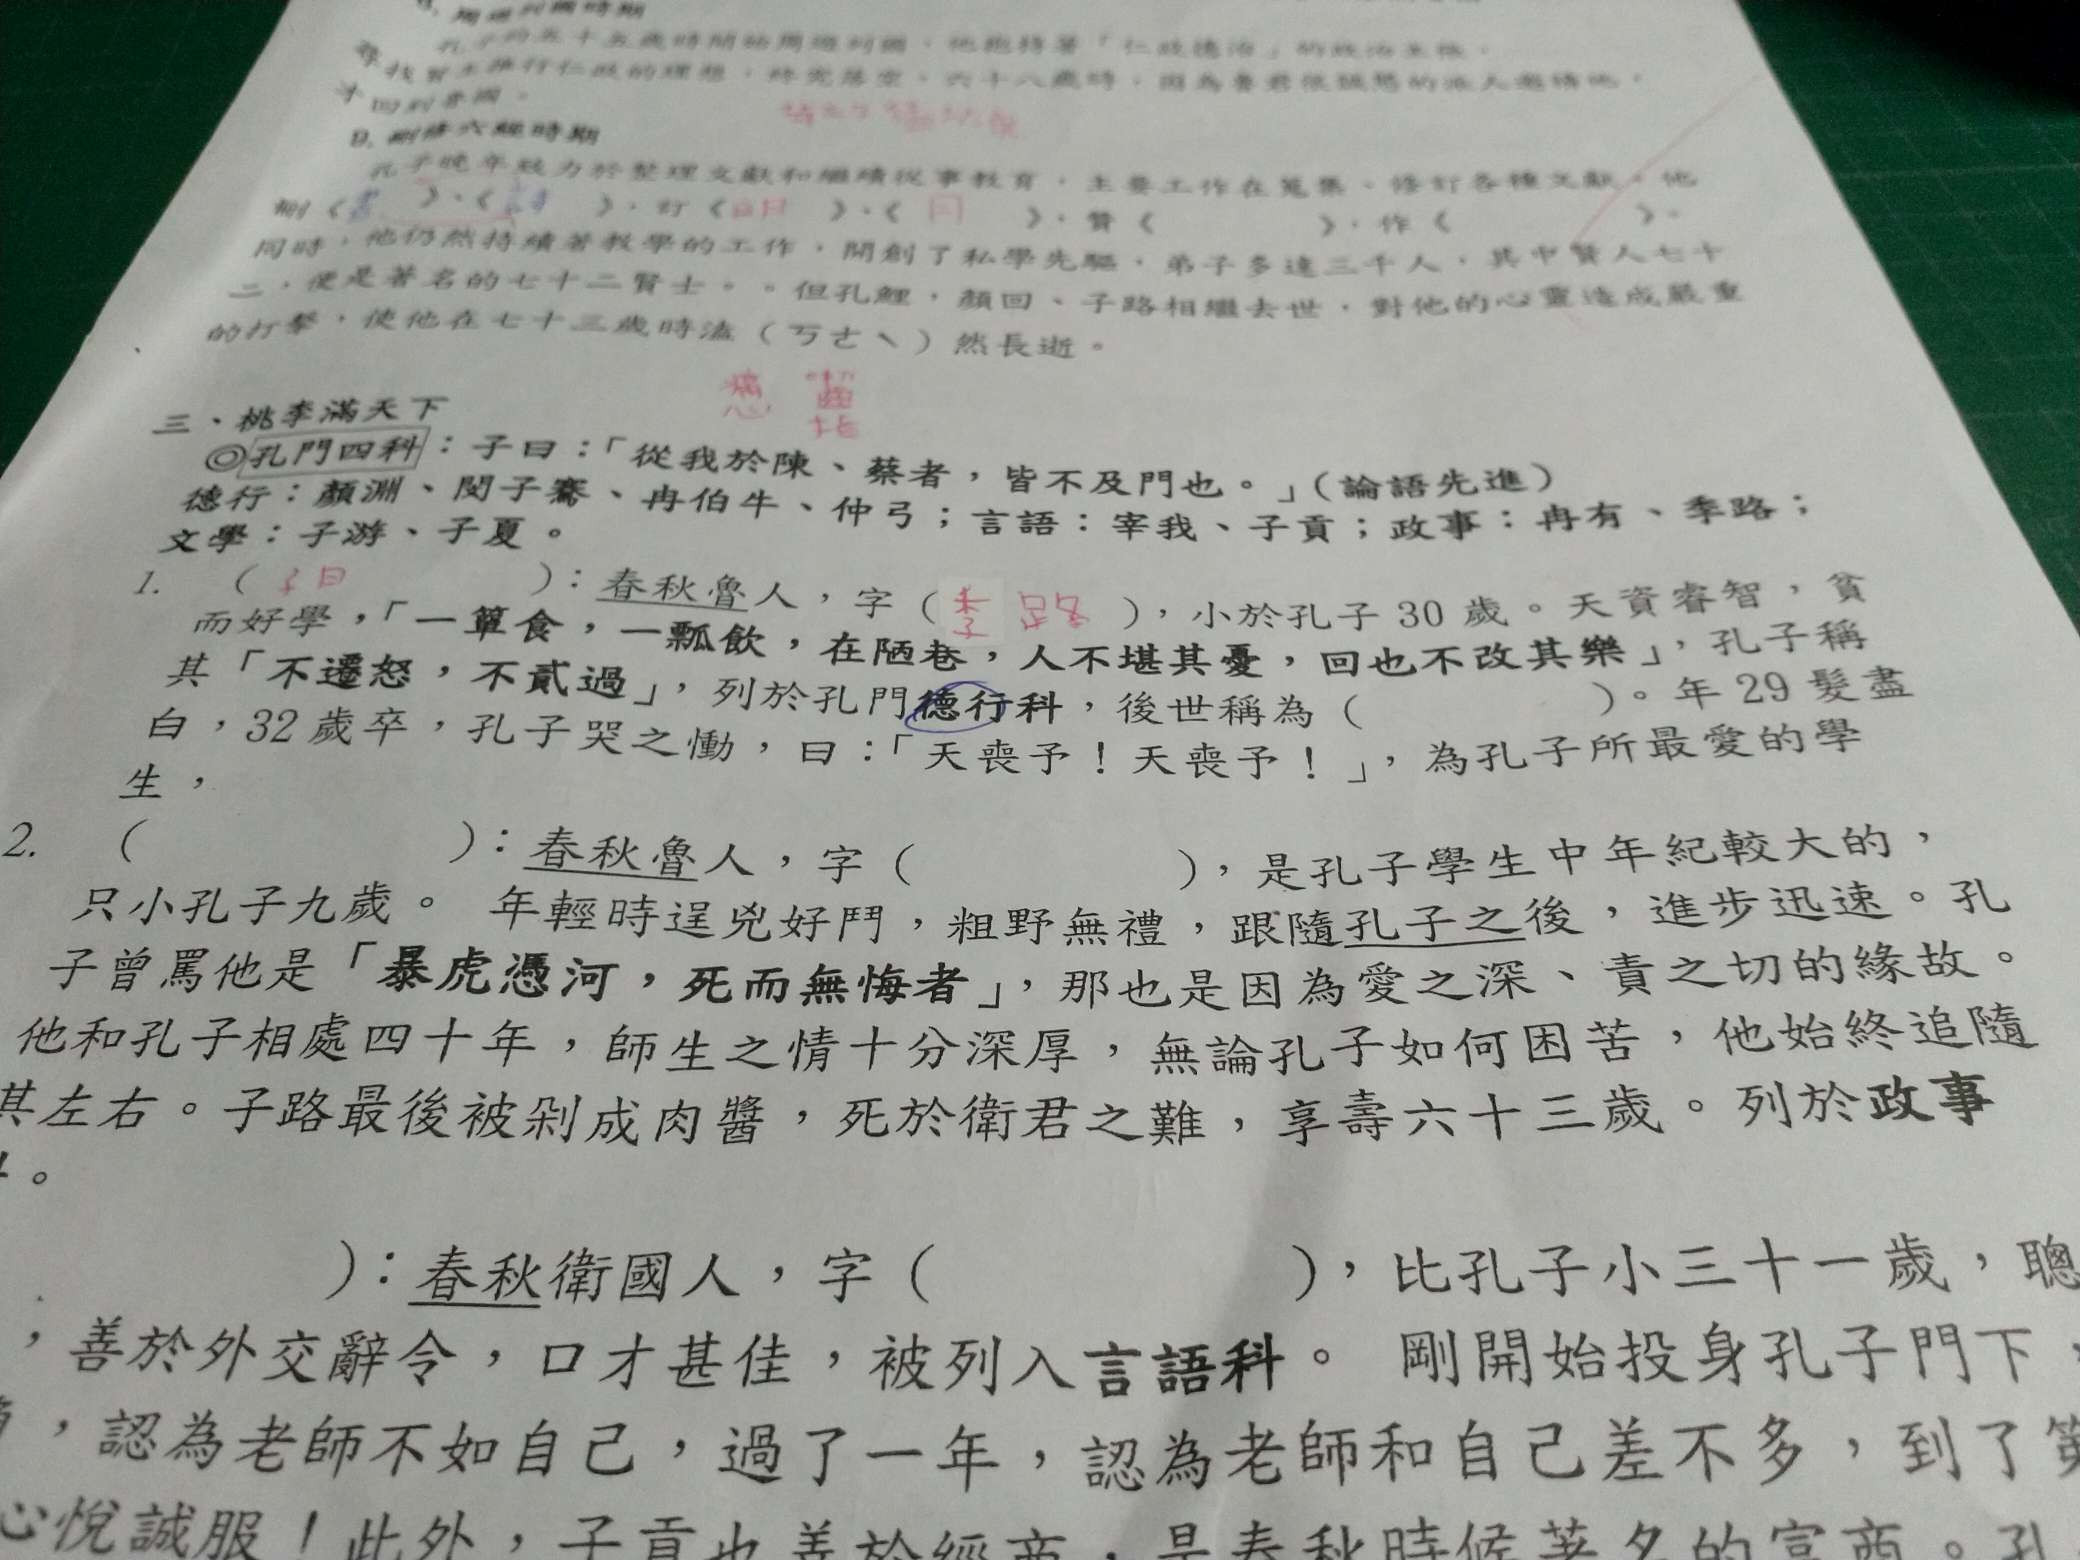 周遊列國時期
孔子的五十五歲時開始周遊列國，他抱持著「仁政德治」的政治主張，
尋找賢主推行仁政的理想，終究落空。六十八歲時，因為魯君很誠懇的派人邀請他，
才回到魯國。
9. 刪修六經時期
孔子晚年致力於整理文獻和繼續從事教育，主要工作在蒐集、修訂各種文獻。他
刪《書》、《詩》，訂《 》、《 》，贊《 》，作《 》。
同時，他仍然持續著教學的工作，開創了私學先驅，弟子多達三千人，其中賢人七十
二，便是著名的七十二賢士。。但孔鯉，顏回、子路相繼去世，對他的心靈造成嚴重
的打擊，使他在七十三歲時溘（ㄎㄜˋ）然長逝。
三、桃李滿天下
◎孔門四科：子曰：「從我於陳、蔡者，皆不及門也。」（論語先進）
德行：顏淵、閔子騫、冉伯牛、仲弓；言語：宰我、子貢；政事：冉有、季路；
文學：子游、子夏。
1. （子曰）：春秋魯人，字（季路），小於孔子 30 歲。天資睿智，貧
而好學，「一簞食，一瓢飲，在陋巷，人不堪其憂，回也不改其樂」，孔子稱
其「不遷怒，不貳過」，列於孔門德行科，後世稱為（ ）。年 29 髮盡
白，32 歲卒，孔子哭之慟，曰：「天喪予！天喪予！」，為孔子所最愛的學
生，
2. （ ）：春秋魯人，字（ ），是孔子學生中年紀較大的，
只小孔子九歲。 年輕時逞兇好鬥，粗野無禮，跟隨孔子之後，進步迅速。孔
子曾罵他是「暴虎憑河，死而無悔者」，那也是因為愛之深、責之切的緣故。
他和孔子相處四十年，師生之情十分深厚，無論孔子如何困苦，他始終追隨
其左右。子路最後被剁成肉醬，死於衛君之難，享壽六十三歲。列於政事
。
）：春秋衛國人，字（ ），比孔子小三十一歲，聰
，善於外交辭令，口才甚佳，被列入言語科。 剛開始投身孔子門下，
，認為老師不如自己，過了一年，認為老師和自己差不多，到了第
心悅誠服！此外，子貢也善於經商，是春秋時候著名的富商。孔